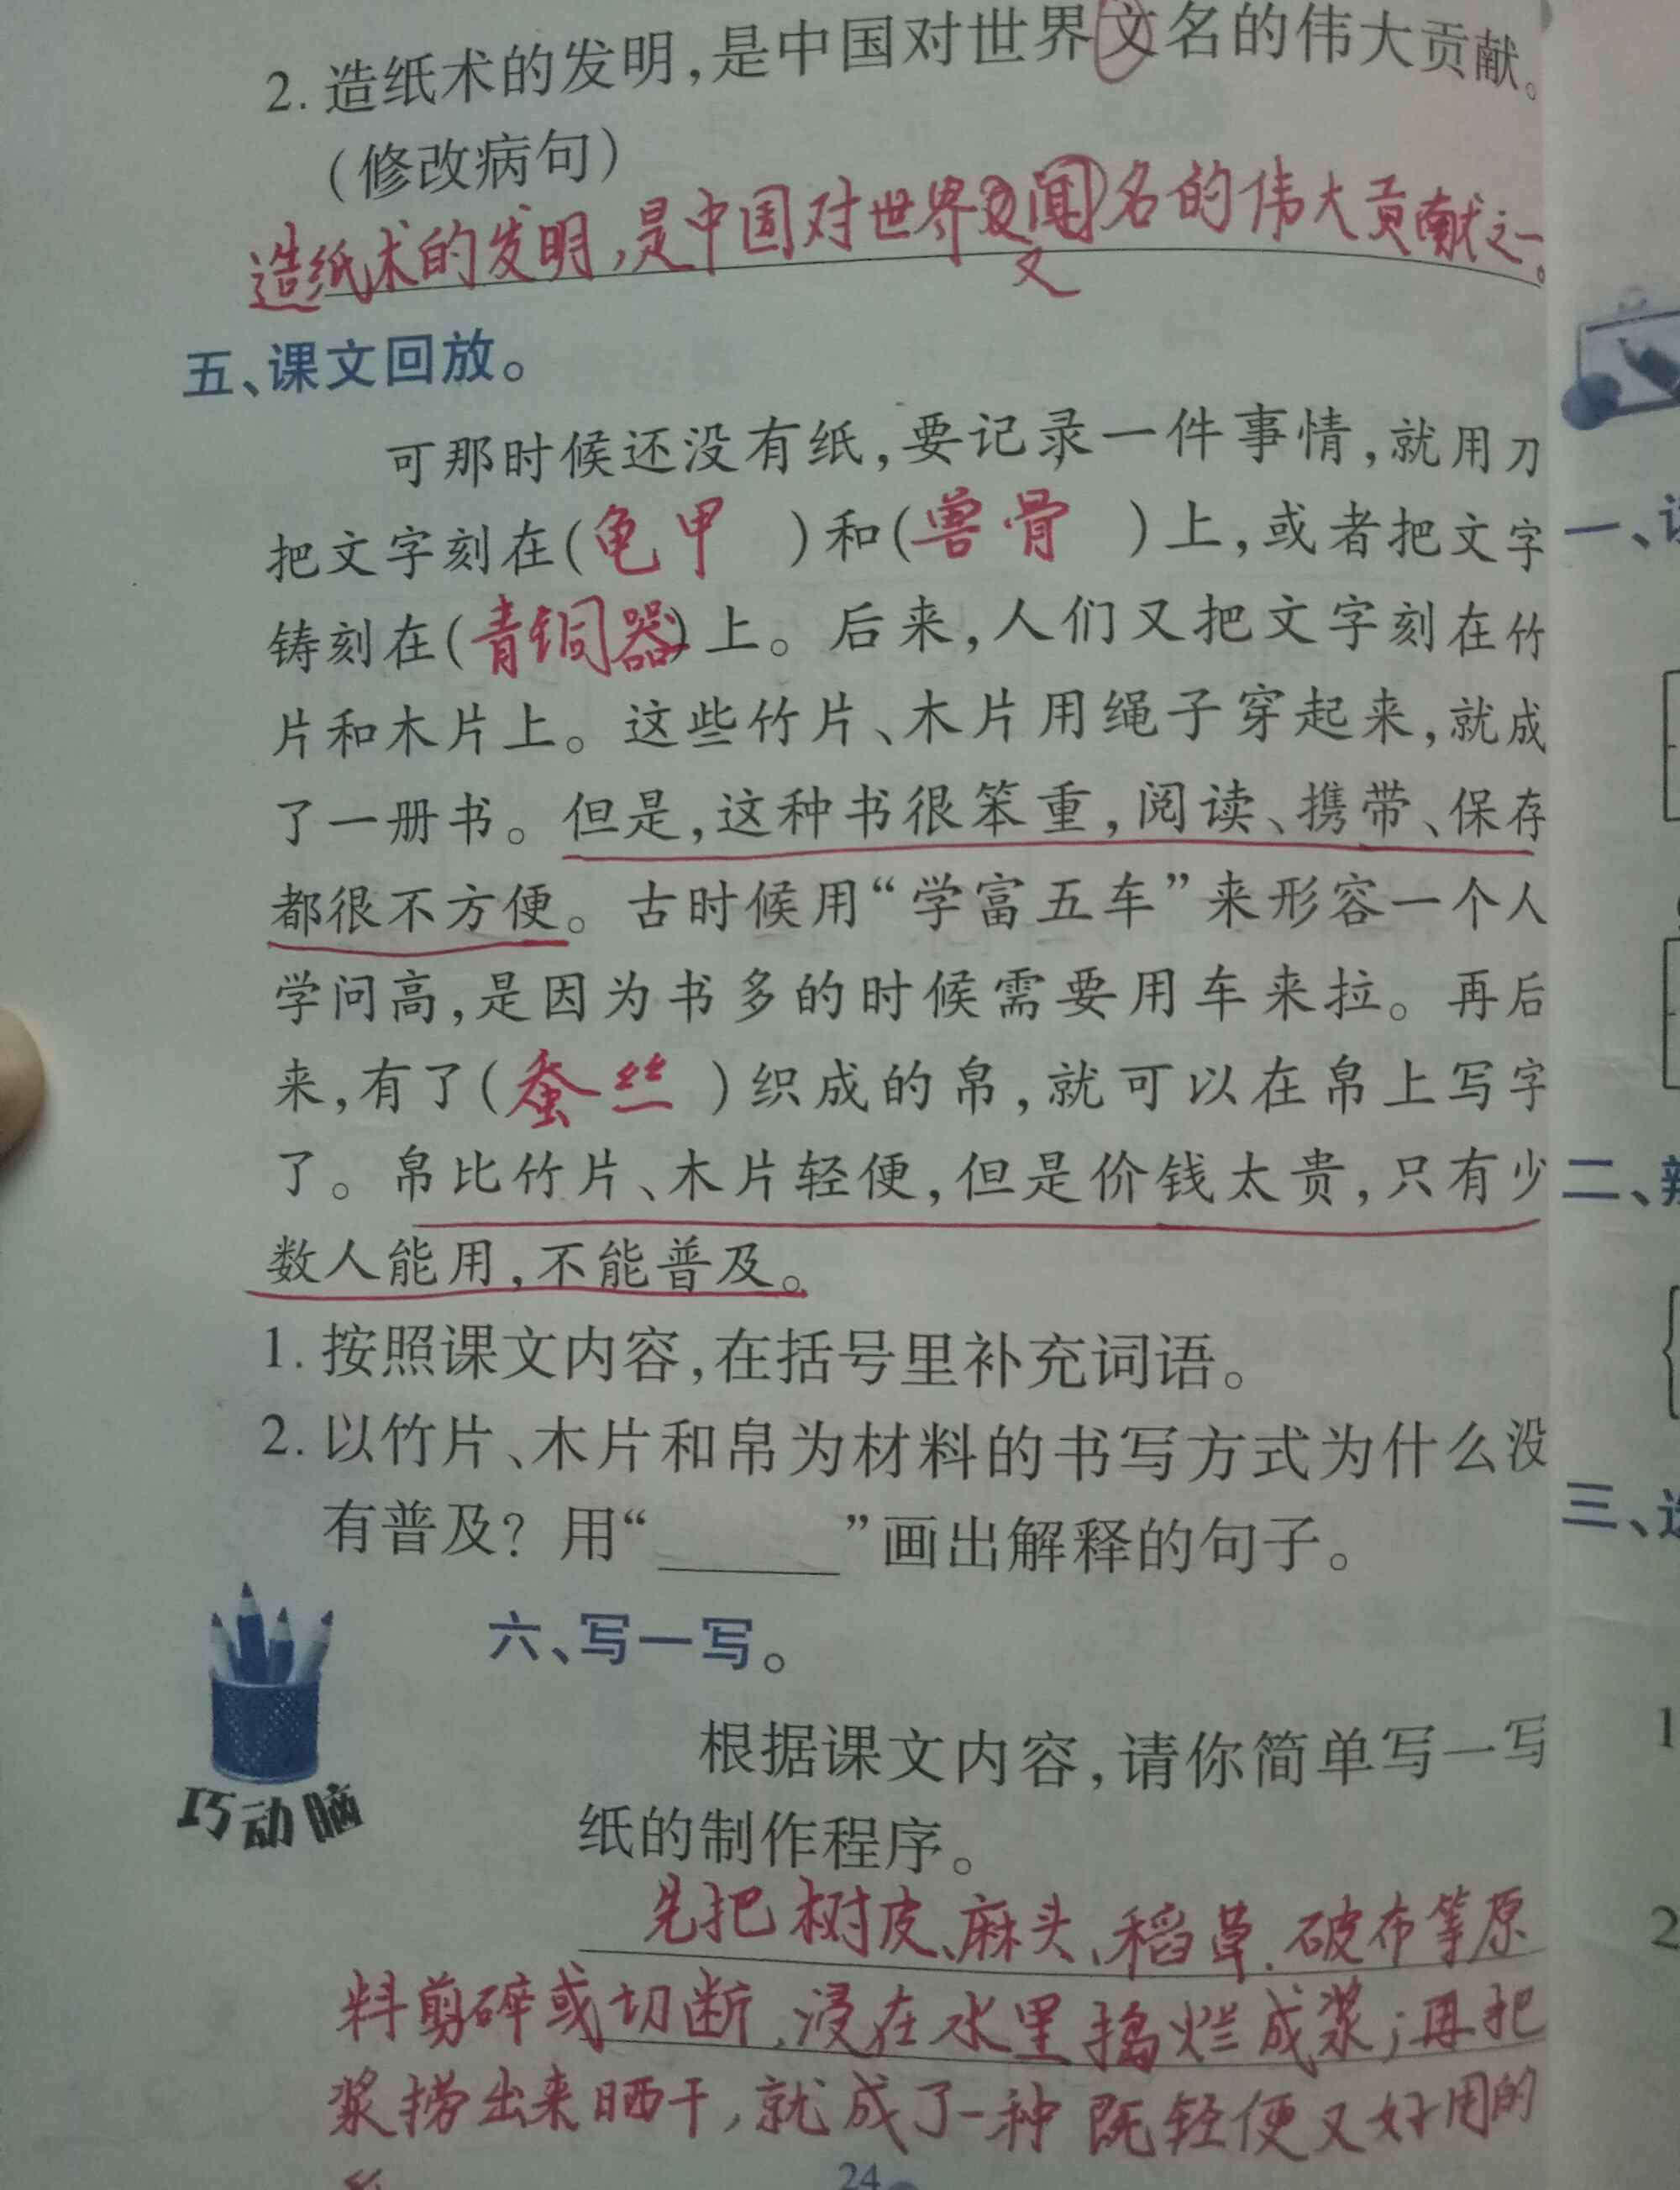 2. 造纸术的发明,是中国对世界文名的伟大贡献。
(修改病句)
造纸术的发明,是中国对世界闻名的伟大贡献之一。
文
五、课文回放。
可那时候还没有纸,要记录一件事情,就用刀
把文字刻在(龟甲)和(兽骨)上,或者把文字
铸刻在(青铜器)上。后来,人们又把文字刻在竹
片和木片上。这些竹片、木片用绳子穿起来,就成
了一册书。但是,这种书很笨重,阅读、携带、保存
都很不方便。古时候用“学富五车”来形容一个人
学问高,是因为书多的时候需要用车来拉。再后
来,有了(蚕丝)织成的帛,就可以在帛上写字
了。帛比竹片、木片轻便,但是价钱太贵,只有少
数人能用,不能普及。
1. 按照课文内容,在括号里补充词语。
2. 以竹片、木片和帛为材料的书写方式为什么没
有普及?用“______”画出解释的句子。
巧动脑
六、写一写。
根据课文内容,请你简单写一写
纸的制作程序。
先把树皮、麻头、稻草、破布等原
料剪碎或切断,浸在水里捣烂成浆;再把
浆捞出来晒干,就成了一种既轻便又好用的
24
一、
二、
三、
1
2